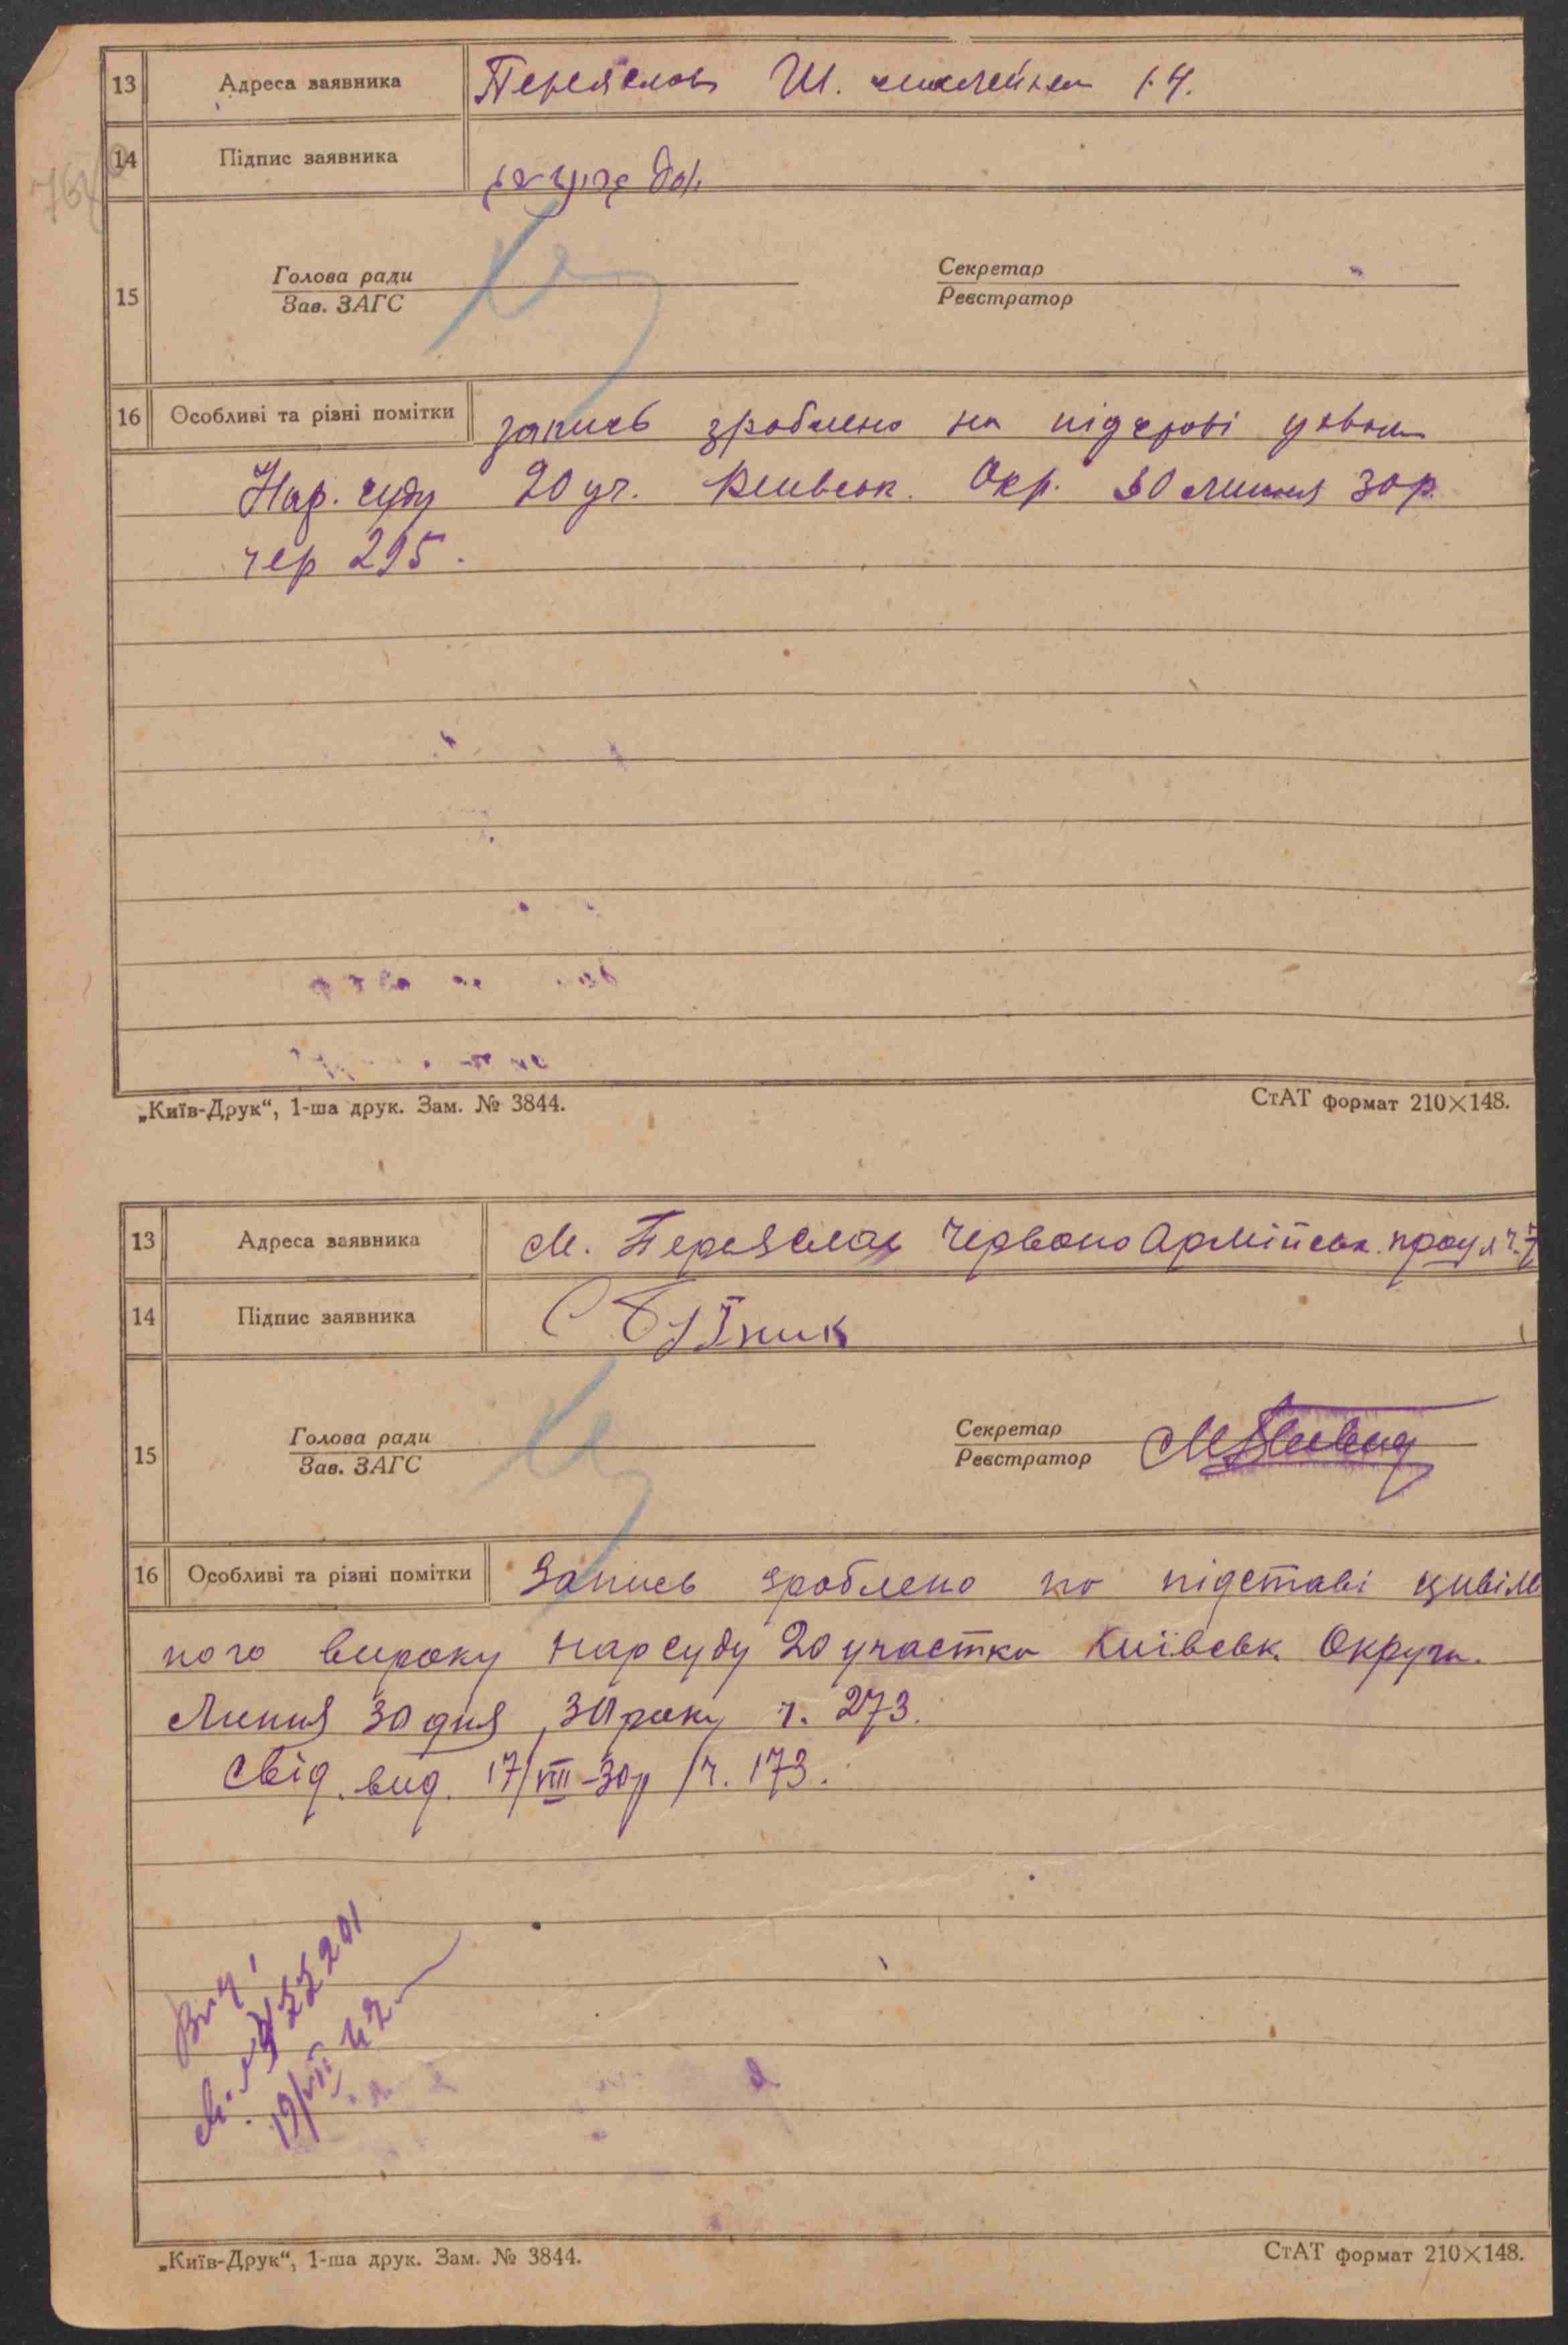 13 Адреса заявника Переяслов Ш. 14.
14 Підпис заявника
764
15 Голова ради
Зав. ЗАГС
Секретар
Реєстратор
16 Особливі та різні помітки запись зроблено на
Нар. суду 20 уч. Окр. 30 липня 30 р.
чер 295.
„Київ-Друк“, 1-ша друк. Зам. № 3844. СтАТ формат 210×148.
13 Адреса заявника М. Переяслав ЧервоноАрмійськ. проул ч. 7
14 Підпис заявника
15 Голова ради
Зав. ЗАГС
Секретар
Реєстратор
16 Особливі та різні помітки Запись зроблено на підставі цивіль
ного вироку Нарсуду 20 участка Київськ. Округи.
Липня 30 дня, 30 року ч. 273.
Свід. вид. 17/VIII-30 р /ч. 173.
19/VII 42
„Київ-Друк“, 1-ша друк. Зам. № 3844. СтАТ формат 210×148.